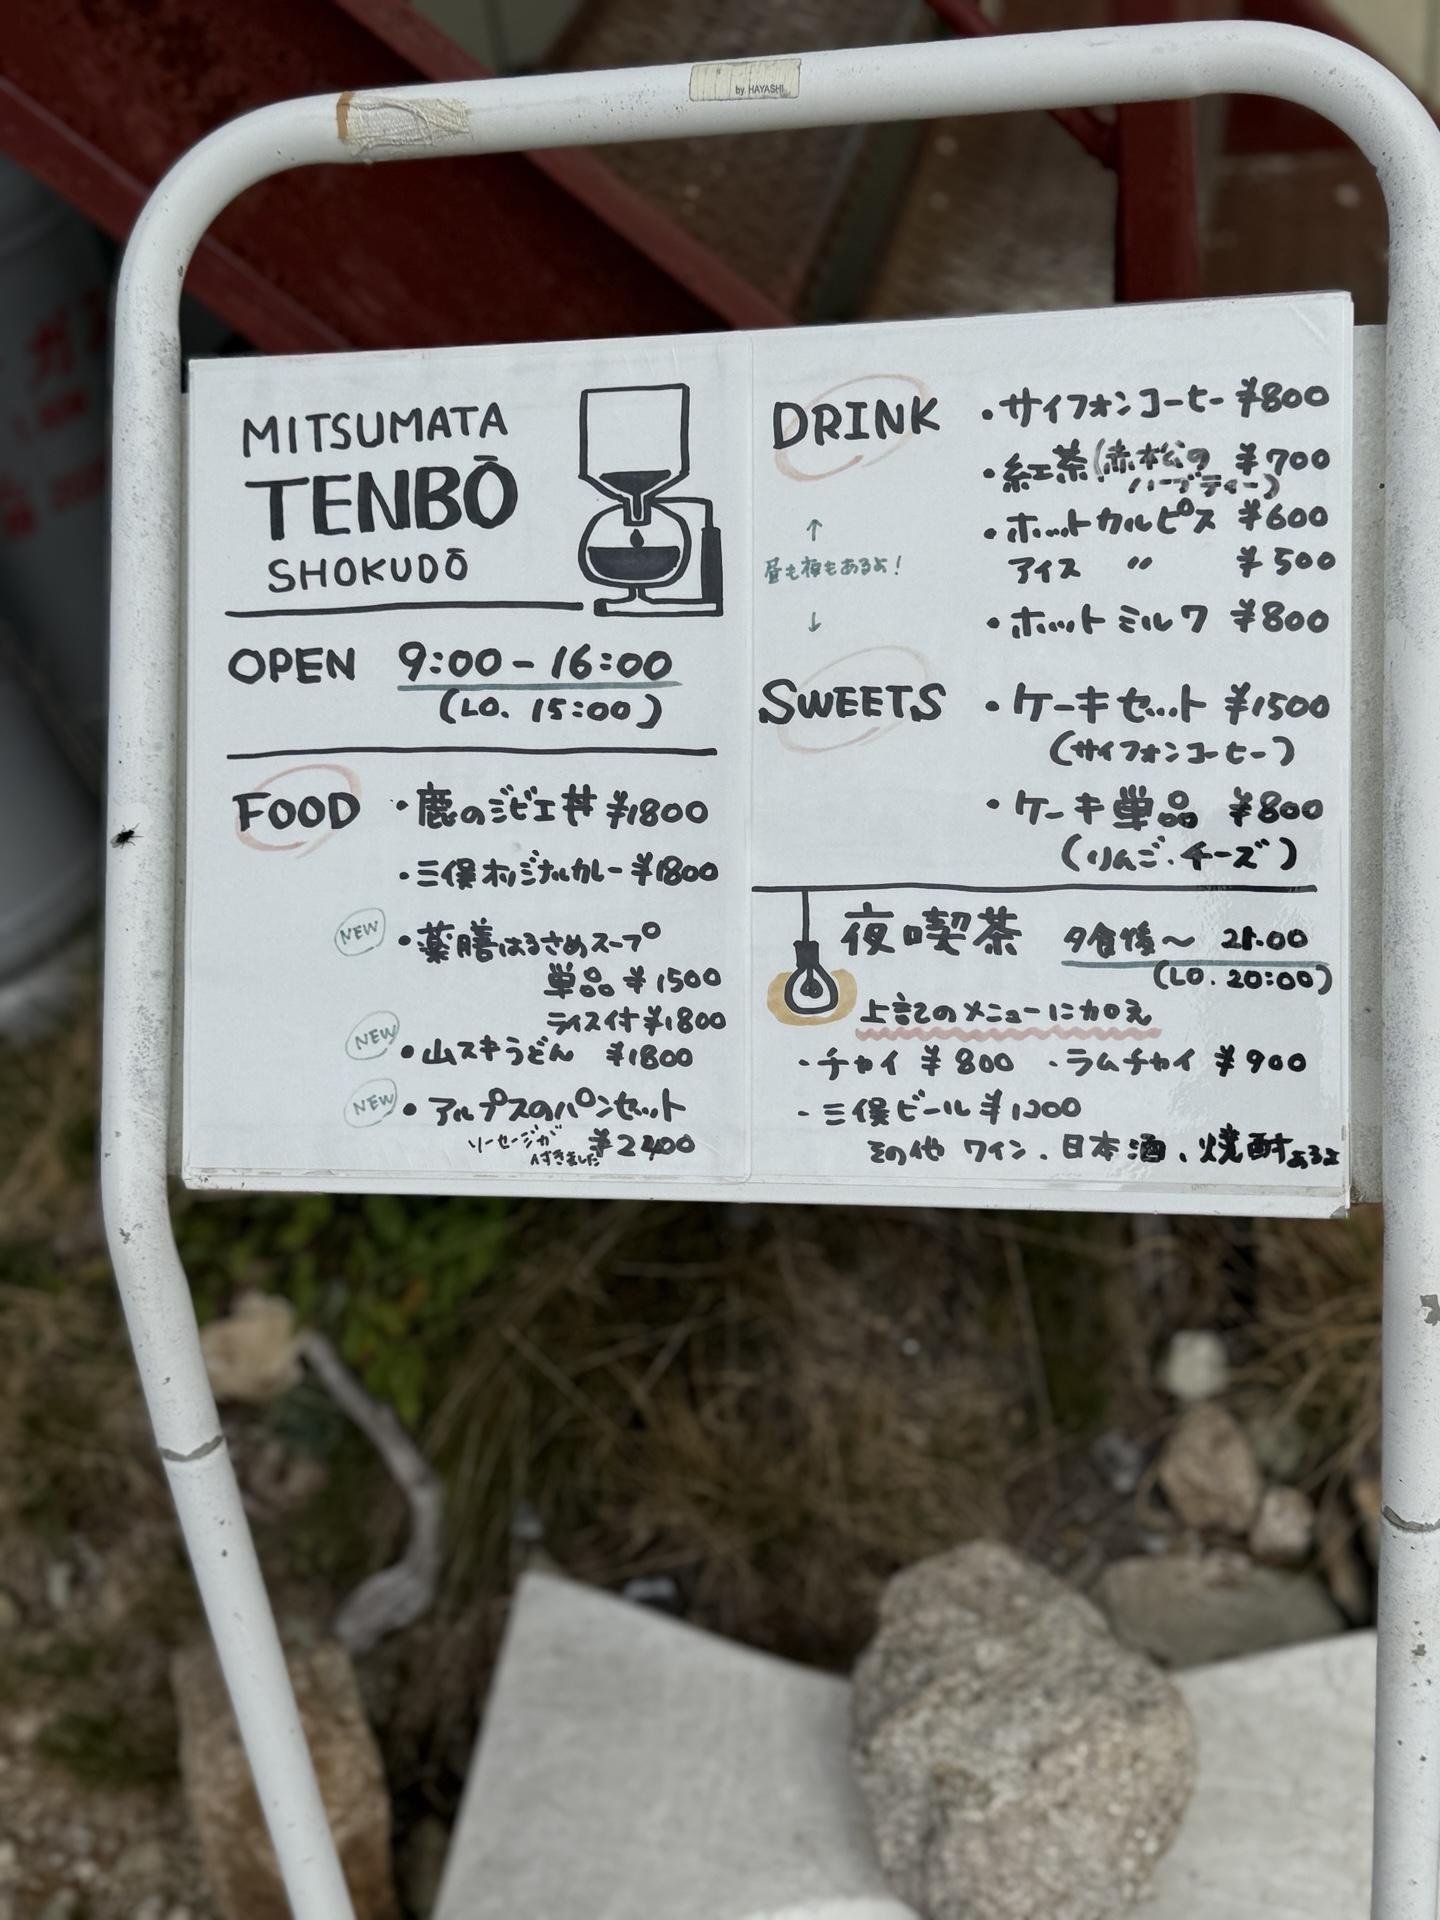 by. HAYASHI
MITSUMATA
TENBŌ
SHOKUDŌ
OPEN 9:00-16:00
(LO. 15:00)
FOOD ・鹿のジビエ丼 ¥1800
・三俣オリジナルカレー ¥1800
NEW ・薬膳はるさめスープ
単品 ¥1500
ライス付 ¥1800
NEW ・山スキうどん ¥1800
NEW ・アルプスのパンセット
ソーセージが
付きました ¥2400
DRINK ・サイフォンコーヒー ¥800
・紅茶(赤松の ¥700
ハーブティー)
・ホットカルピス ¥600
アイス 〃 ¥500
・ホットミルク ¥800
↑
昼も夜もあるよ!
↓
SWEETS ・ケーキセット ¥1500
(サイフォンコーヒー)
・ケーキ単品 ¥800
(りんご・チーズ)
夜喫茶 夕食後〜 21:00
(LO. 20:00)
上記のメニューに加え
・チャイ ¥800 ・ラムチャイ ¥900
・三俣ビール ¥1200
その他 ワイン、日本酒、焼酎あるよ